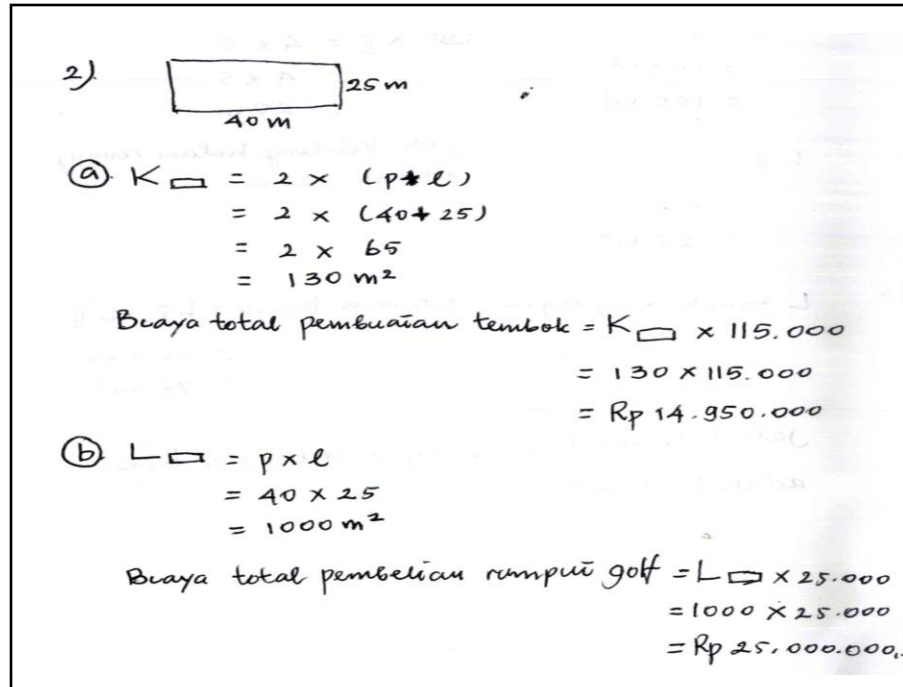 2).
25 m
40 m
(a) K▭ = 2 × (p+l)
= 2 × (40+25)
= 2 × 65
= 130 m²
Biaya total pembuatan tembok = K▭ × 115.000
= 130 × 115.000
= Rp 14.950.000
(b) L▭ = p×l
= 40 × 25
= 1000 m²
Biaya total pembelian rumput golf = L▭ × 25.000
= 1000 × 25.000
= Rp 25.000.000,.